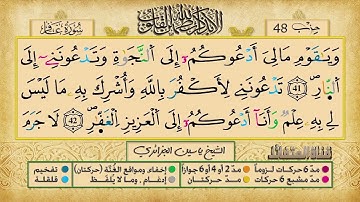 سورة غافر
ألا بذكر الله تطمئن القلوب
حزب 48
وَيَٰقَوْمِ مَا لِيَ أَدْعُوكُمُۥٓ إِلَى ٱلنَّجَوٰةِ وَتَدْعُونَنِيٓ إِلَى
ٱلنّارِ 41 تَدْعُونَنِي لِأَكْفُرَ بِٱللَّهِ وَأُشْرِكَ بِهِۦ مَا لَيْسَ
لِي بِهِۦ عِلْمٌ وَأَنَآ أَدْعُوكُمُۥٓ إِلَى ٱلْعَزِيزِ ٱلْغَفَّٰرِ 42 لَا جَرَمَ
الشيخ ياسين الجزائري
مدّ 6 حركات لزوماً
مدّ 2 أو 4 أو 6 جوازاً
إخفاء، ومواقع الغُنَّة (حركتان)
تفخيم
مدّ مشبع 6 حركات
مدّ حركتان
إدغام، وما لا يُلفَظ
قلقلة